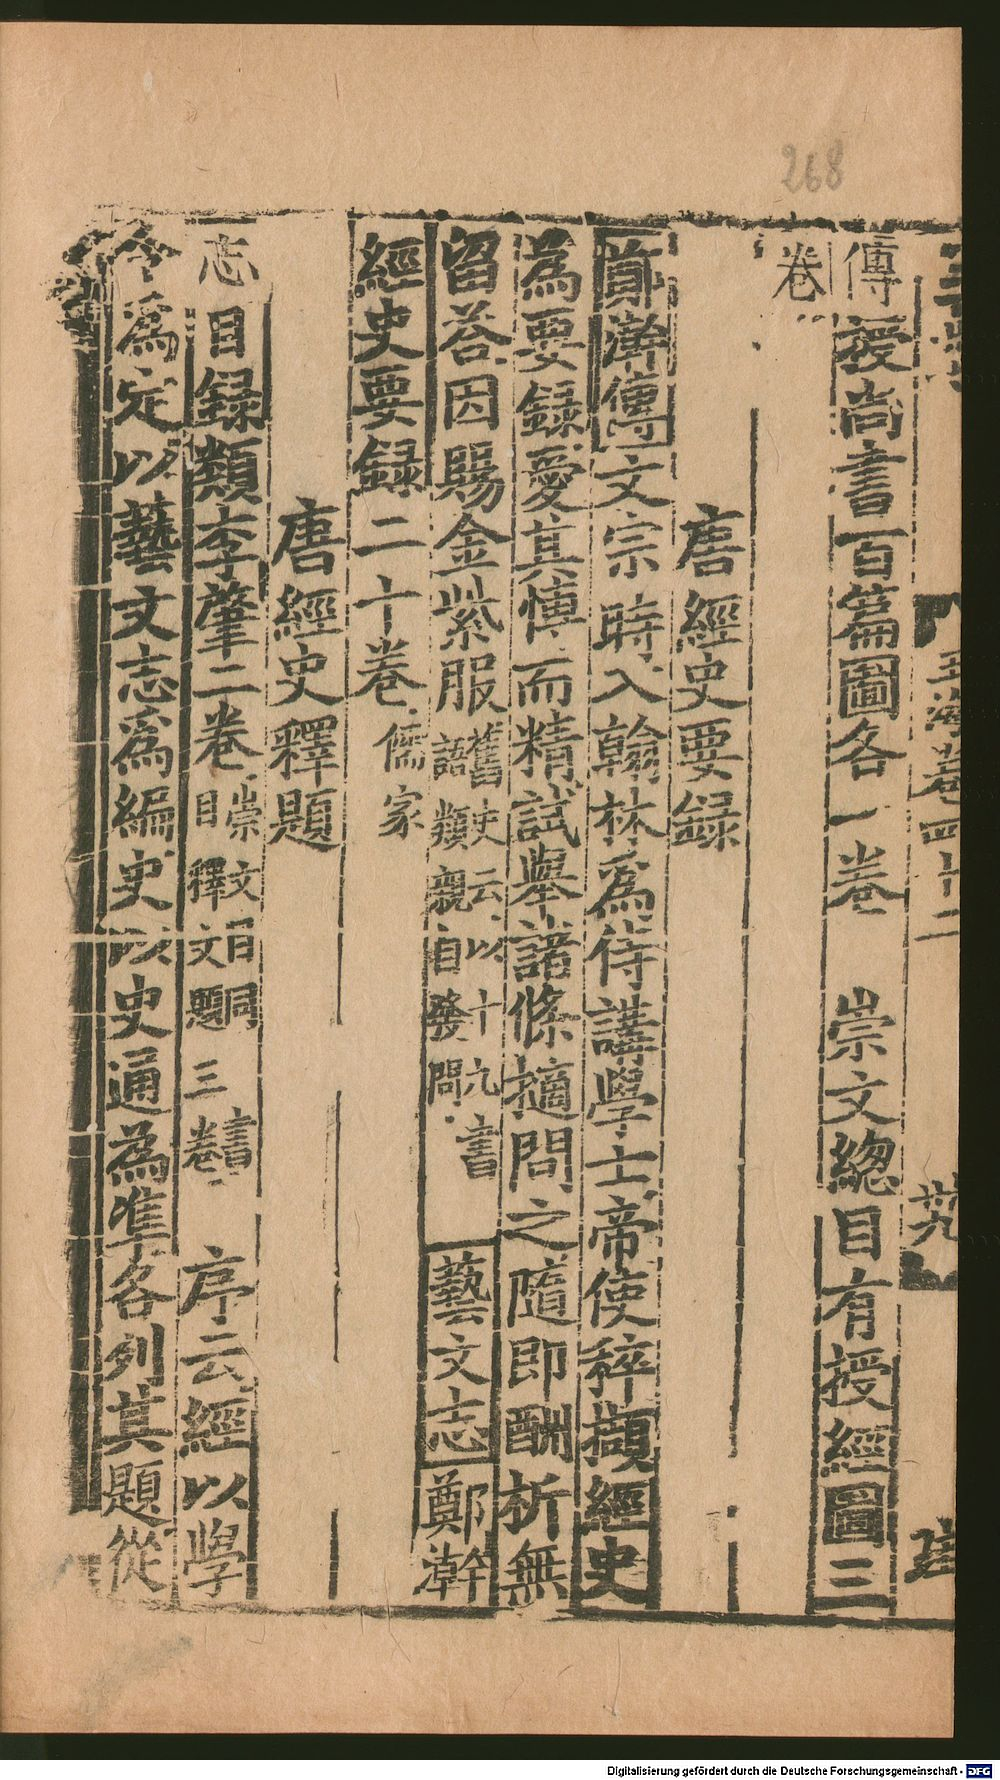 268
玉海卷四十二
廿九
傳授尚書百篇圖各一卷 崇文緫目有授經圖三
卷
唐經史要録
鄭澣傳文宗時入翰林爲侍講學士帝使稡擷經史
爲要録愛其博而精試舉諸條擿問之隨即酬析無
留荅因賜金紫服舊史云以十九書語類親自發問 藝文志鄭澣
經史要録二十卷儒家
唐經史釋題
志目録類李肇二卷崇文目同書目釋文題三卷 序云經以學
令爲定以藝文志爲編史以史通爲準各列其題從
Digitalisierung gefördert durch die Deutsche Forschungsgemeinschaft - DFG